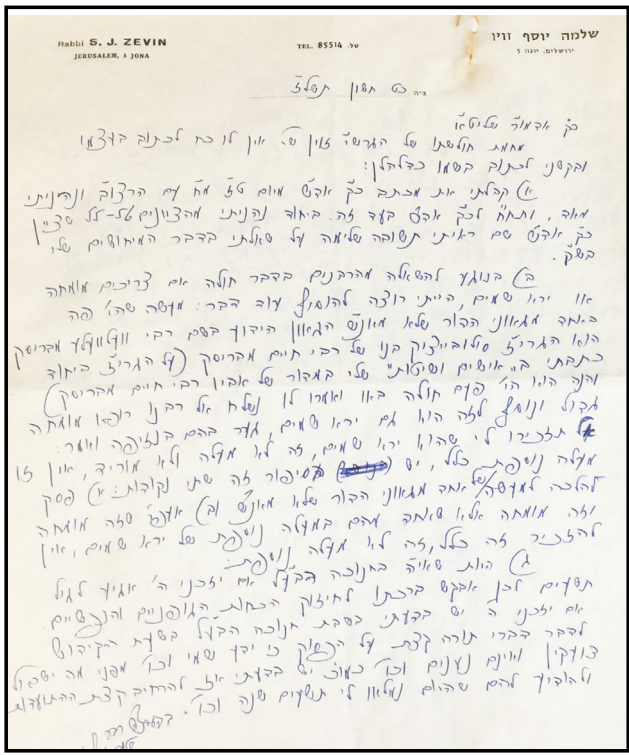 Rabbi S. J. ZEVIN
JERUSALEM, 5 JONA
TEL. 85514 טל.
שלמה יוסף זוין
ירושלים, יונה 5
ב״ה כט חשון תשל״ז
כ״ק אדמו״ר שליט״א
מחמת חולשתו של הגרש״י זוין ש אין לו כח לכתוב בעצמו
ובקשני לכתוב בשמו כדלהלן:
א) קבלתי את מכתב כ״ק אד״ש מיום ט״ז מ״ח עם הרצו״ב ונהניתי
מאד, ותח״ח לכ״ק אד״ש בעד זה. ביחוד נהניתי מהציונים
כ״ק אד״ש שם ראיתי תשובה שלימה על שאלתי בדבר המיחושים שלי
בש״ק.
ב) בנוגע להשאלה מהרבנים בדבר חולה אם צריכים מומחה
או ירא שמים, הייתי רוצה להוסיף עוד דבר: מעשה שהי׳ פה
ביחד מגאוני הדור שלא מאנ״ש הגאון הידוע בשם רבי וועלוועלע מבריסק
הוא הגרי״ז סולובייציק בנו של רבי חיים מבריסק (על הגרי״ז ביחוד
כתבתי ב״אישים ושיטות״ שלי במדור של אביו רבי חיים מבריסק)
והנה הוא הי׳ פעם חולה באו ואמרו לו נשלח אל רבנו רופא מומחה
גדול ונוסף לזה הוא גם ירא שמים, גער בהם בנזיפה ואמר:
אל תזכירו לי שהוא ירא שמים, זה לא מעלה ולא מוריד, אין זו
מעלה נוספת כלל, יש בסיפור זה שתי נקודות: א) פסק
להלכה למעשה של אחד מגאוני הדור שלא מאנ״ש וב) שזה מומחה
וזה מומחה אלא שאחד מהם במעלה נוספת של ירא שמים, אין
להזכיר זה כלל, זה לא מעלה נוספת.
ג) היות שאי״ה בחנוכה הבע״ל אם יזכני ה׳ אגיע לגיל
תשעים לכן אבקש ברכתו לחיזוק הכחות הגופניים והנפשיים
אם יזכני ה׳ יש בדעתי בשבת חנוכה הבע״ל בשעת הקידוש
לדבר דברי תורה קצת על הפסוק כי ידע שמי וכו׳ מפני מה ישראל
צועקין ואינם נענים וכו׳ יש בדעתי אז להרחיב קצת ההתועדות
ולהודיע להם שהיום נמלאו לי תשעים שנה וכו׳.